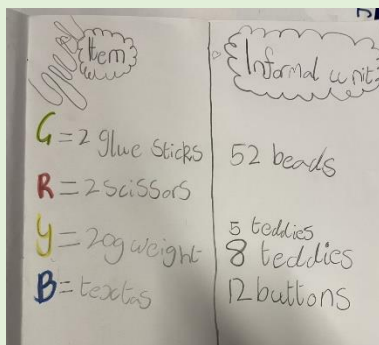 Item
Informal unit
G = 2 glue sticks
52 beads
R = 2 scissors
5 teddies
Y = 20g weight
8 teddies
B = textas
12 buttons